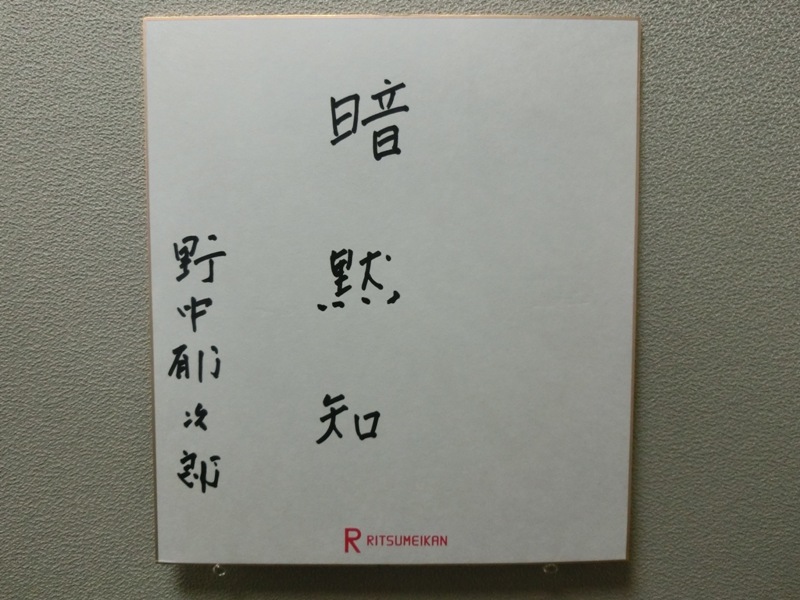 暗黙知
野中郁次郎
R RITSUMEIKAN